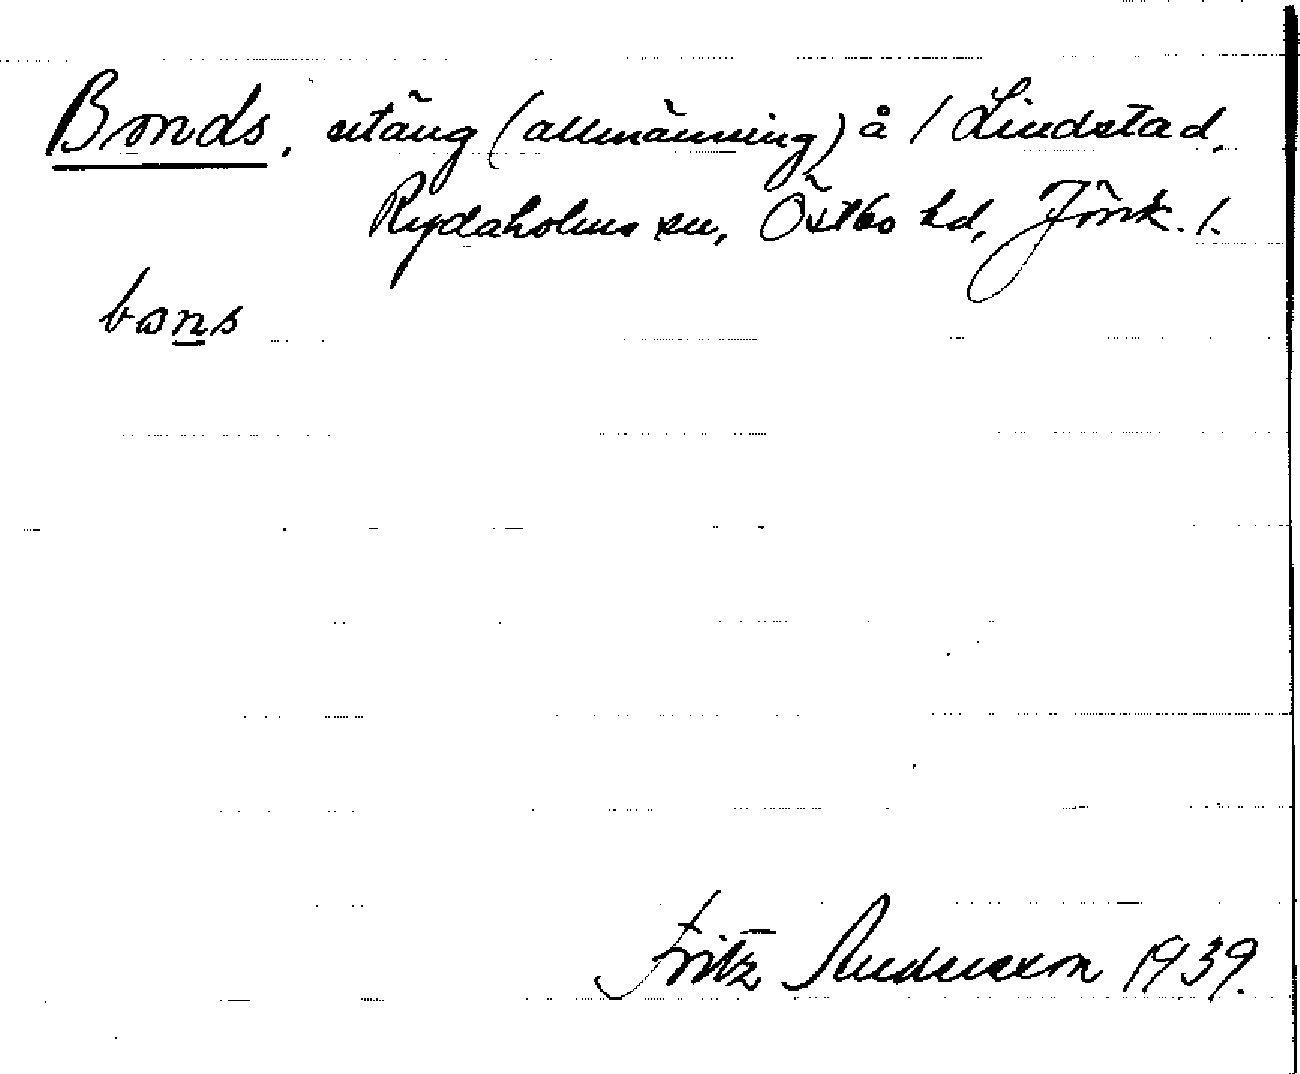 Bonds, utäng (allmänning) å / Lindstad,
Rydaholms sn, Östbo hd, Jönk. l.
bons
Fritz Andersson 1939.